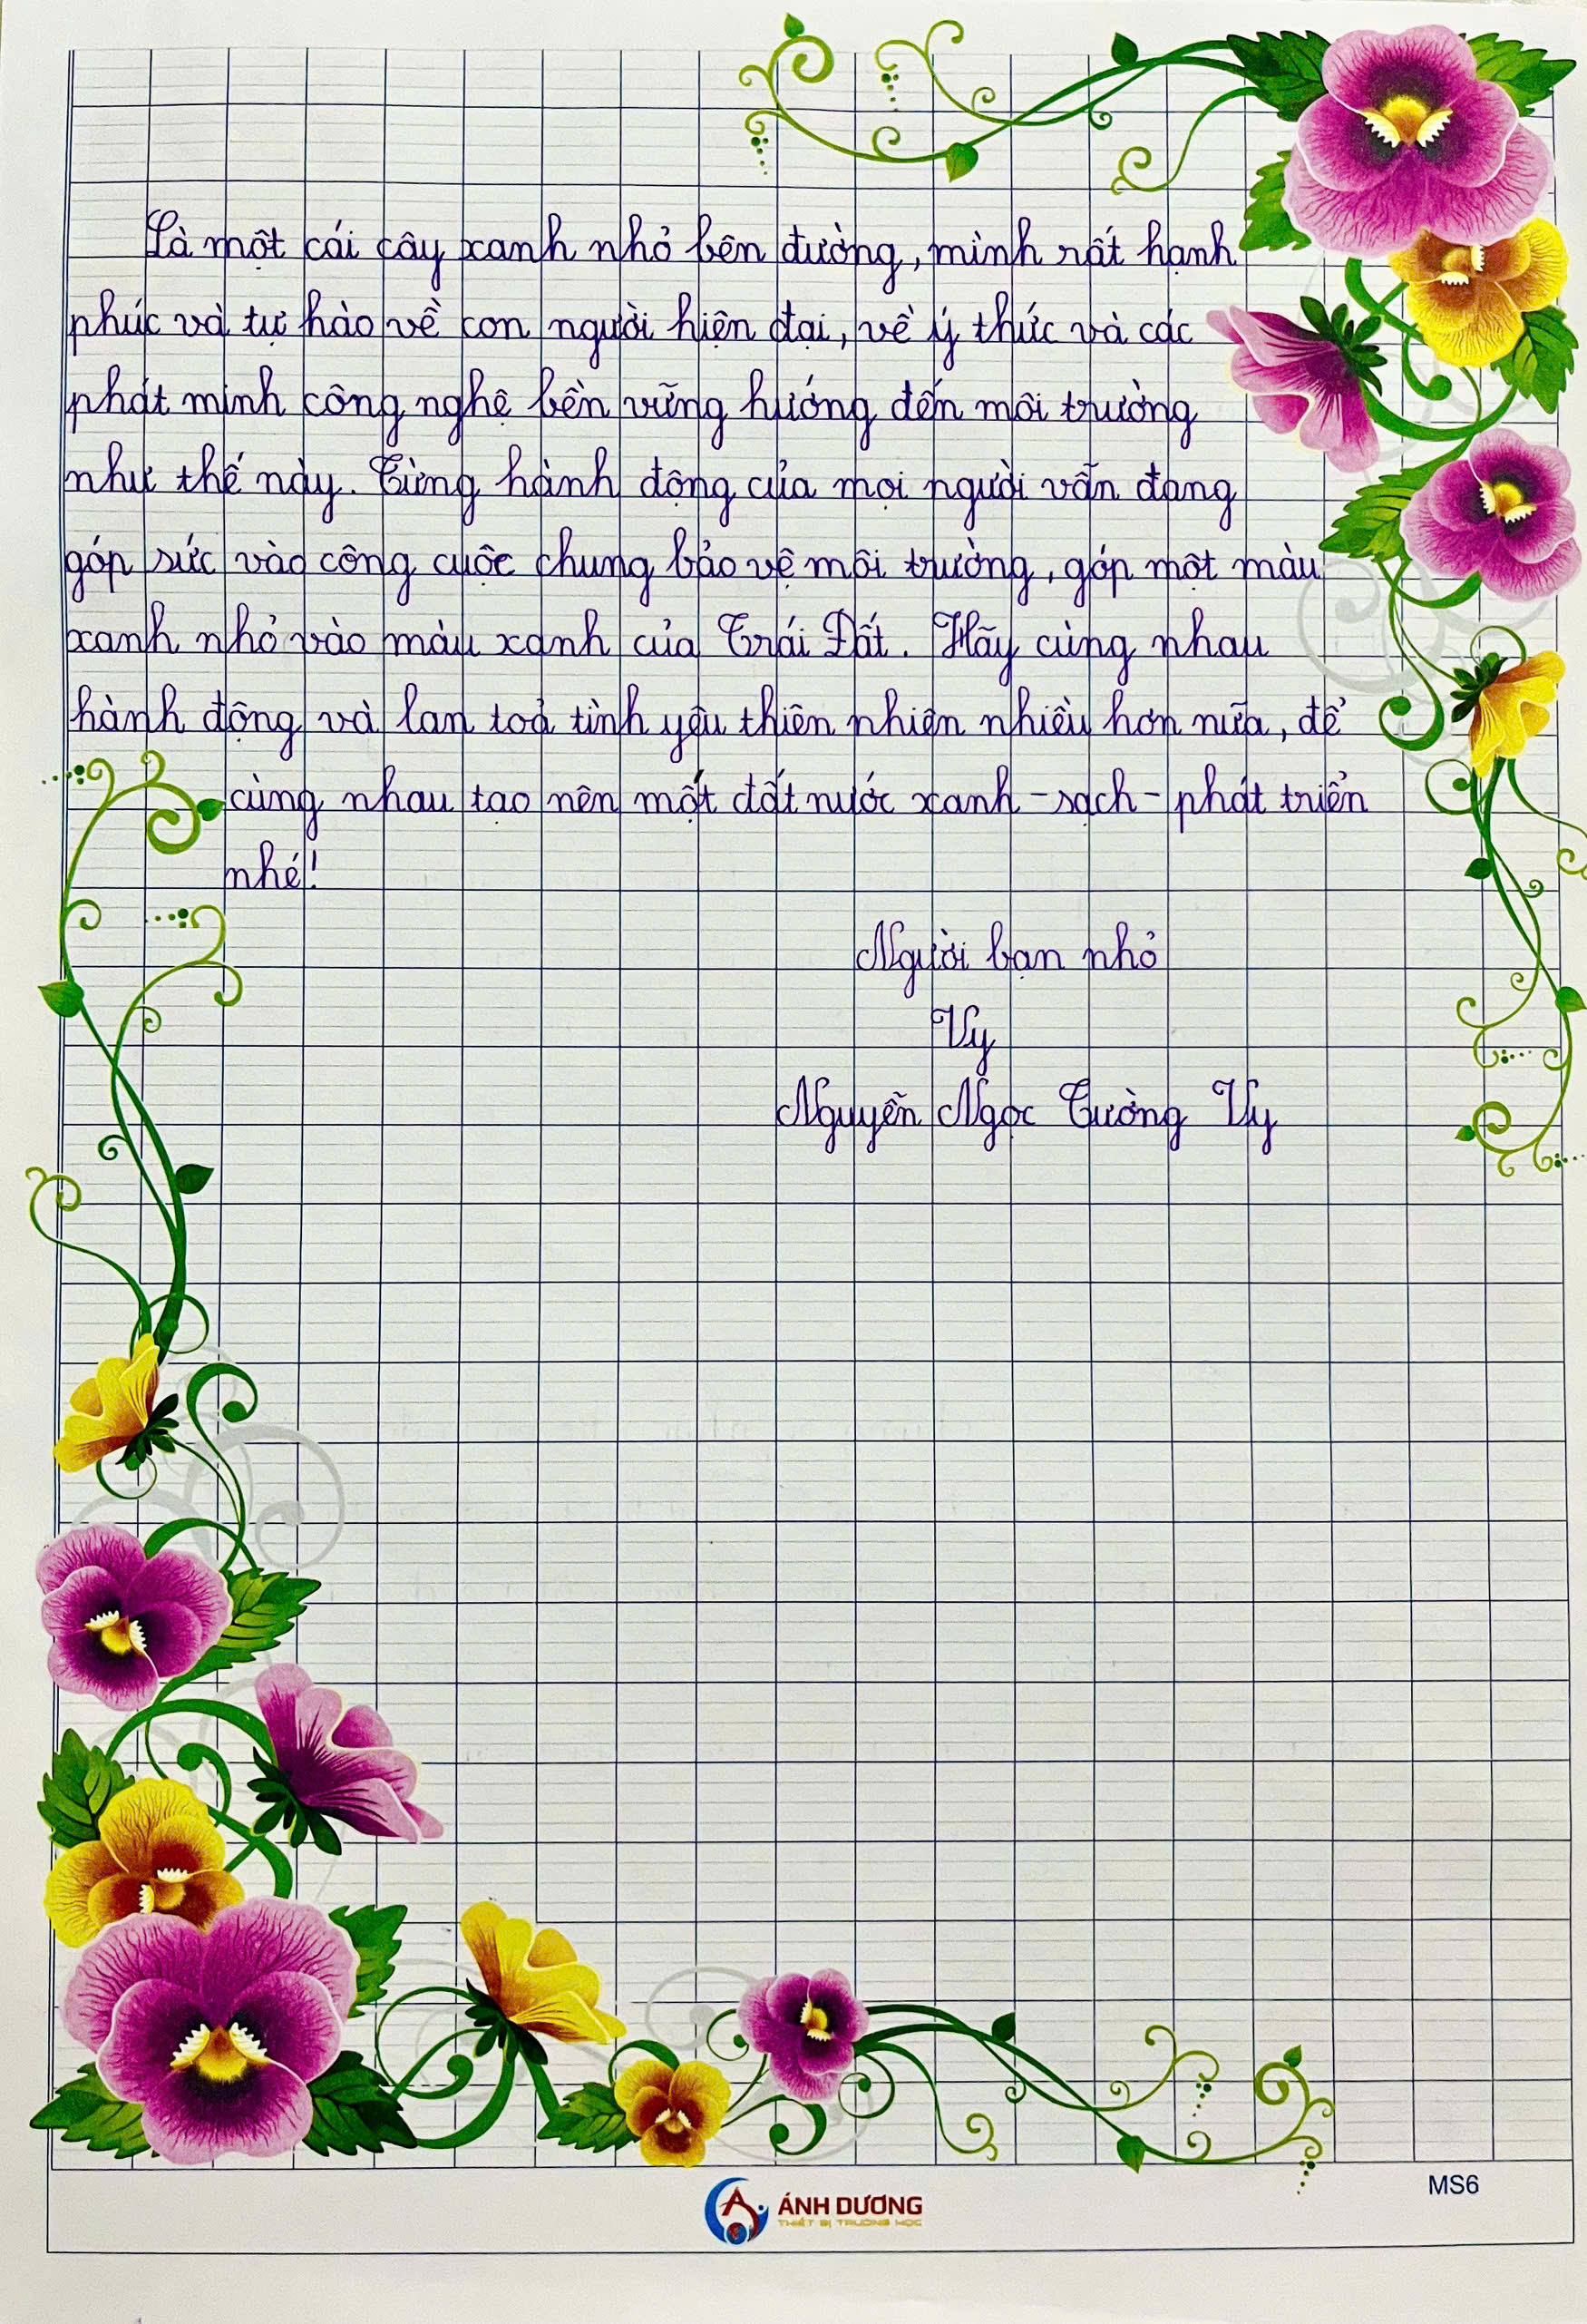 Là một cái cây xanh nhỏ bên đường, mình rất hạnh
phúc và tự hào về con người hiện đại, về ý thức và các
phát minh công nghệ bền vững hướng đến môi trường
như thế này. Từng hành động của mọi người vẫn đang
góp sức vào công cuộc chung bảo vệ môi trường, góp một màu
xanh nhỏ vào màu xanh của Trái Đất. Hãy cùng nhau
hành động và lan toả tình yêu thiên nhiên nhiều hơn nữa, để
cùng nhau tạo nên một đất nước xanh - sạch - phát triển
nhé!
Người bạn nhỏ
Vy
Nguyễn Ngọc Tường Vy
MS6
ÁNH DƯƠNG
THIẾT BỊ TRƯỜNG HỌC